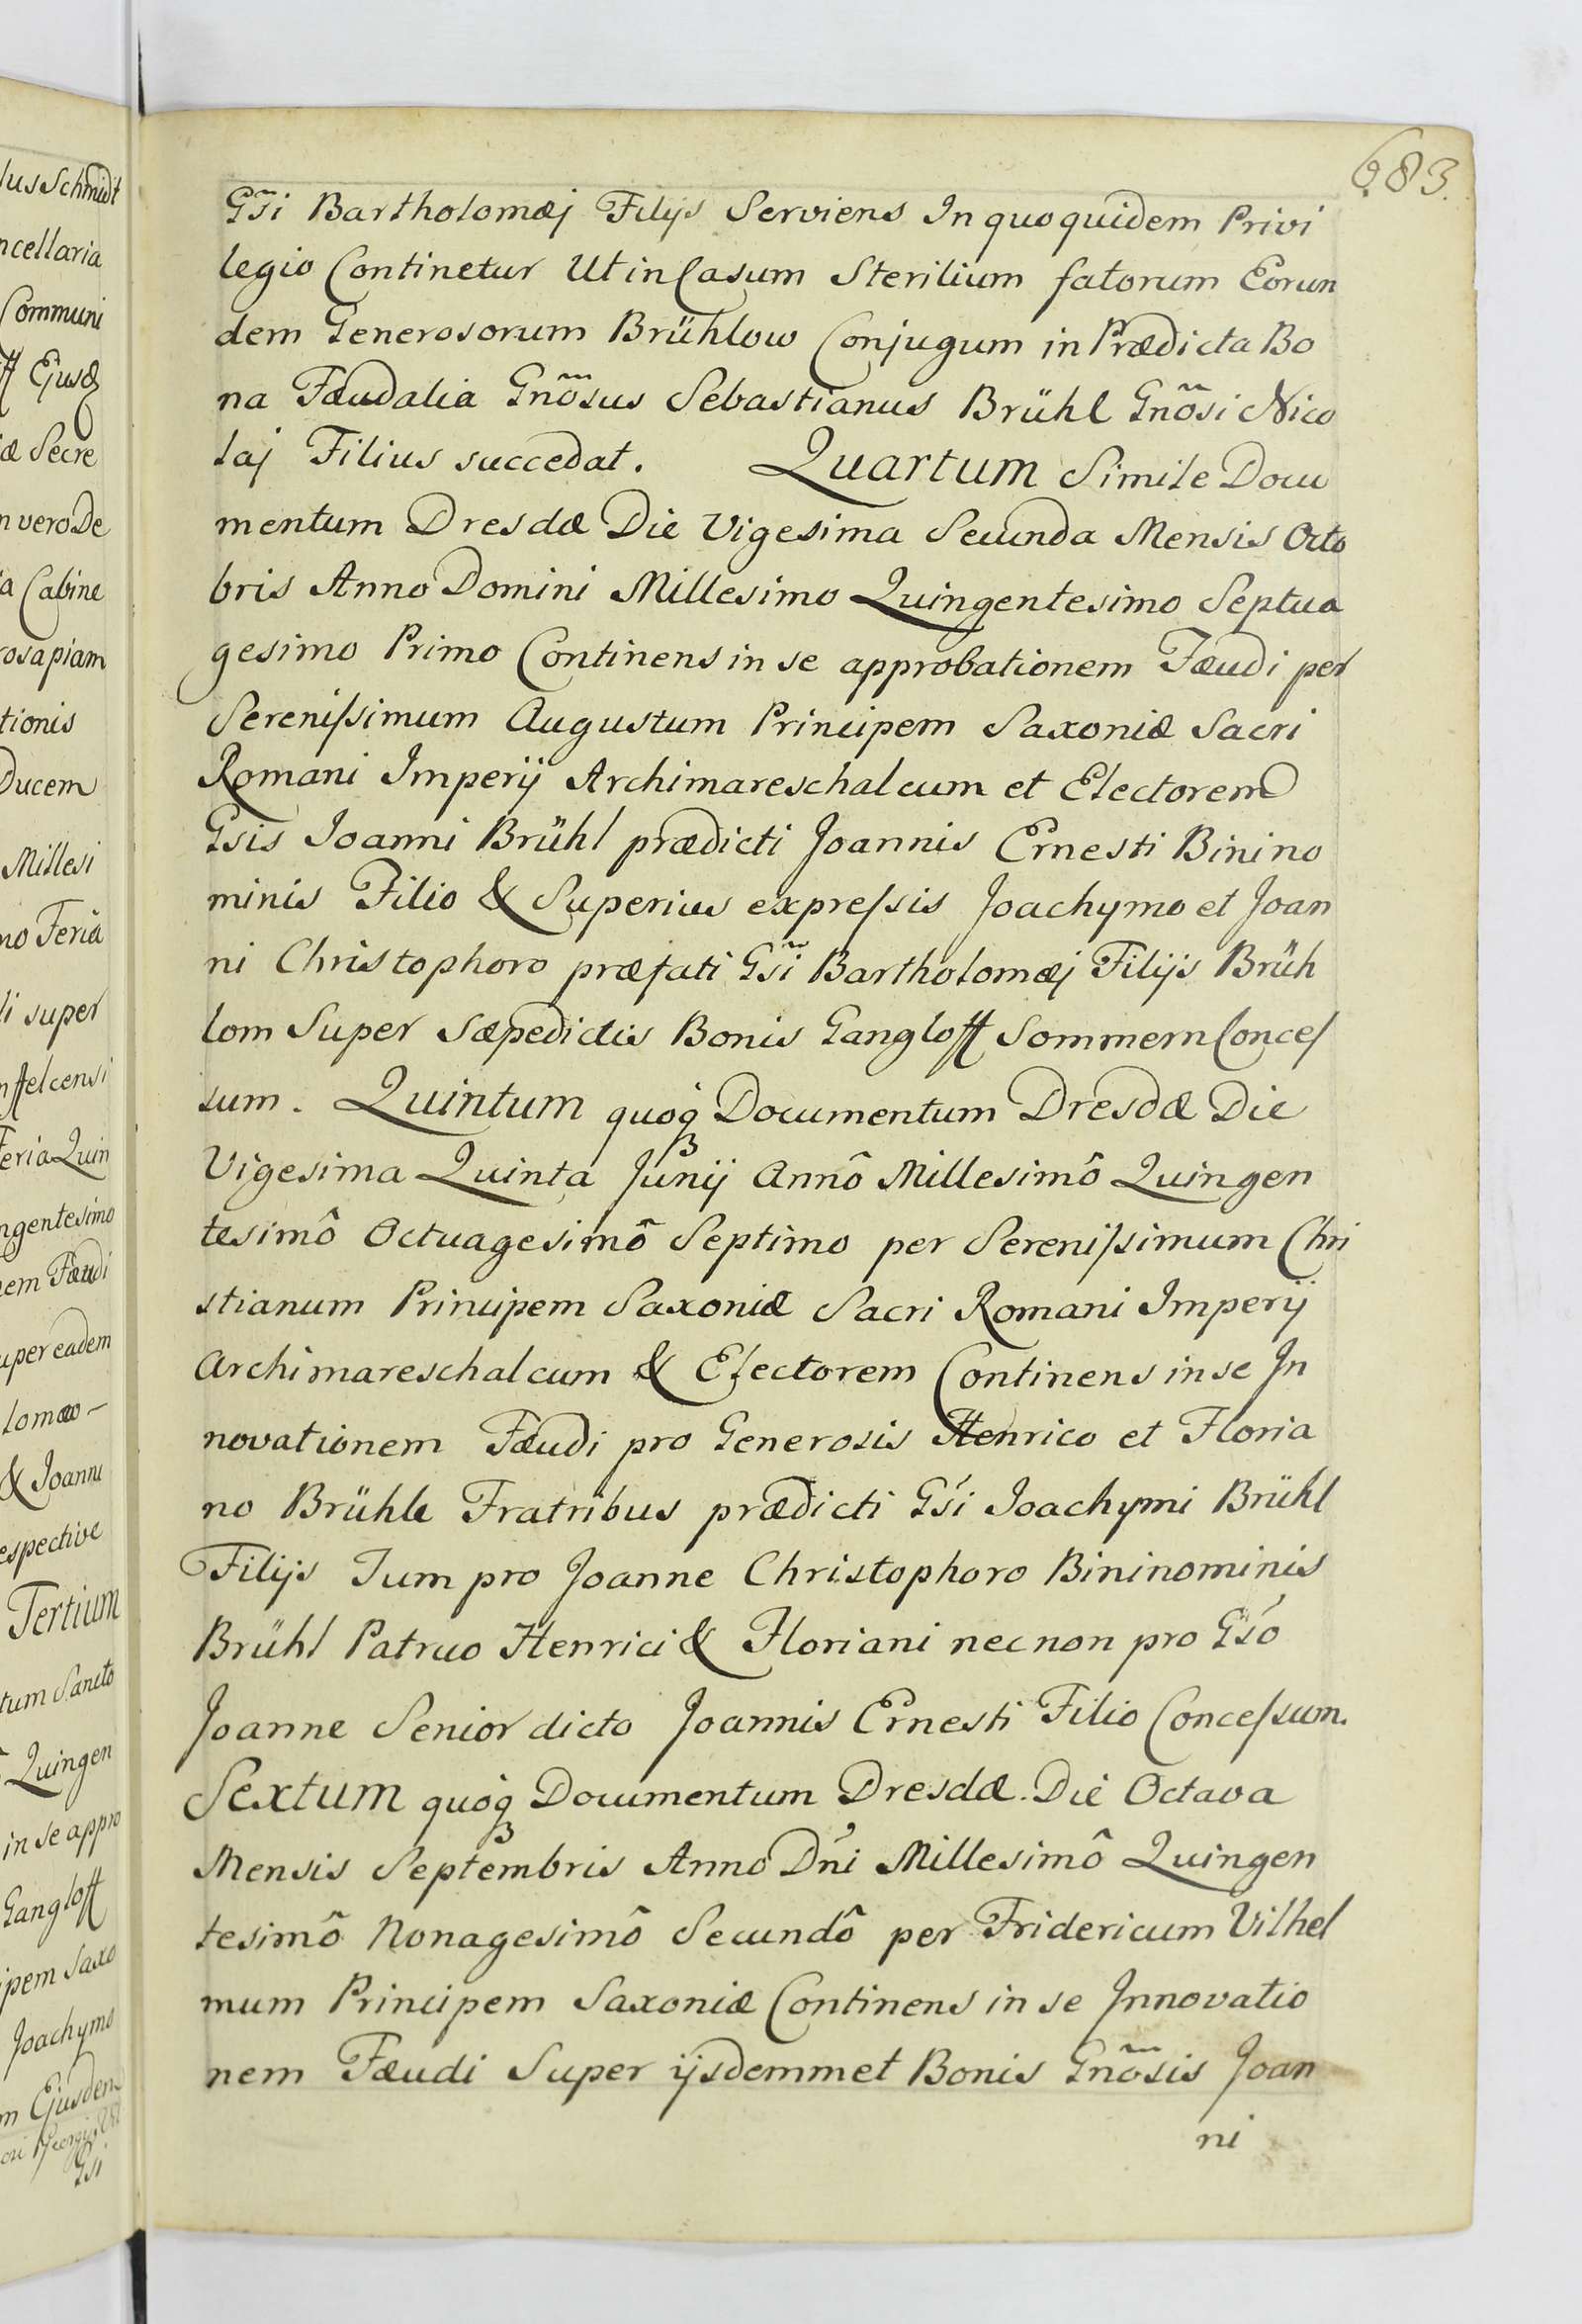 683.
Gsi Bartholomæj Filijs Serviens In quo quidem Privi
legio Continetur Ut in Casum Sterilium fatorum Eorun
dem Generosorum Brühlow Conjugum in Prædicta Bo
na Fæudalia Gnõsus Sebastianus Brühl Gnõsi Nico
laj Filius succedat. Quartum Simile Docu
mentum Dresdæ Die Vigesima Secunda Mensis Octo
bris Anno Domini Millesimo Quingentesimo Septua
gesimo Primo Continens in se approbationem Fæudi per
Serenissimum Augustum Principem Saxoniæ Sacri
Romani Imperij Archimareschalcum et Electorem
Gsis Joanni Brühl prædicti Joannis Ernesti Binino
minis Filio & Superius expressis Joachymo et Joan
ni Christophoro præfati Gsi Bartholomæj Filijs Brüh
lom Super Sæpedictis Bonis Gangloff Sommern Conces
sum. Quintum quoq₃ Documentum Dresdæ Die
Vigesima Quinta Junij Annô Millesimô Quingen
tesimô Octuagesimô Septimo per Serenissimum Chri
stianum Principem Saxoniæ Sacri Romani Imperij
Archimareschalcum & Electorem Continens in se In
novationem Fæudi pro Generosis Henrico et Floria
no Brühle Fratribus prædicti Gsi Joachymi Brühl
Filijs Tum pro Joanne Christophoro Bininominis
Brühl Patruo Henrici & Floriani nec non pro Gso
Joanne Senior dicto Joannis Ernesti Filio Concessum.
Sextum quoq₃ Documentum Dresdæ. Die Octava
Mensis Septembris Anno Dni Millesimô Quingen
tesimô Nonagesimô Secundô per Fridericum Vilhel
mum Principem Saxoniæ Continens in se Innovatio
nem Fæudi Super ijsdemmet Bonis Gnõsis Joan
ni